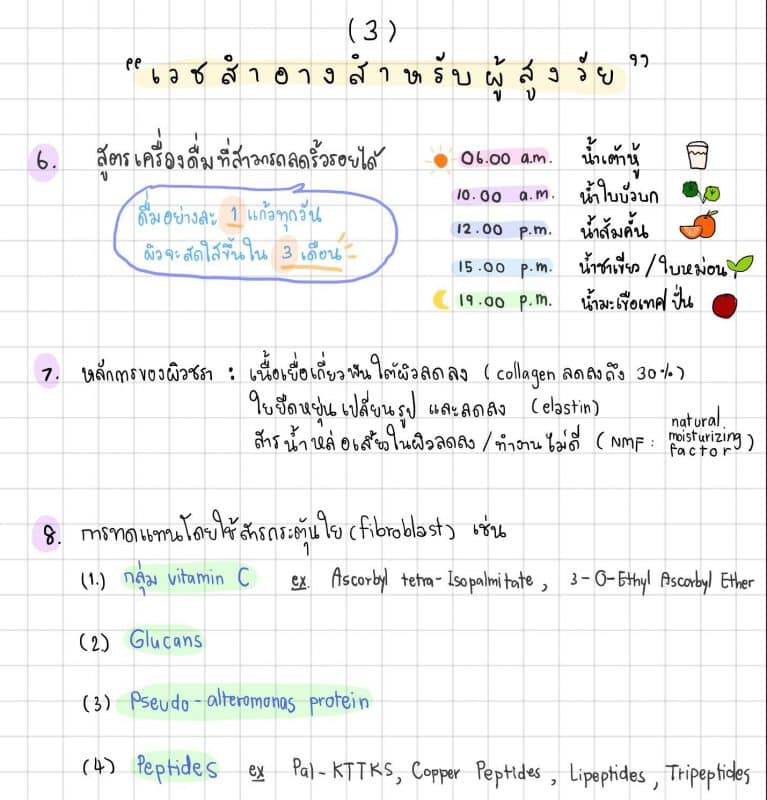 (3)
"เวชสำอางสำหรับผู้สูงวัย"
6. สูตรเครื่องดื่มที่สามารถลดริ้วรอยได้
ดื่มอย่างละ 1 แก้วทุกวัน
ผิวจะสดใสขึ้นใน 3 เดือน
06.00 a.m. น้ำเต้าหู้
10.00 a.m. น้ำใบบัวบก
12.00 p.m. น้ำส้มคั้น
15.00 p.m. น้ำชาเขียว / ใบหม่อน
19.00 p.m. น้ำมะเขือเทศปั่น
7. หลักการของผิวชรา : เนื้อเยื่อเกี่ยวพันใต้ผิวลดลง (collagen ลดลงถึง 30%)
ใยยืดหยุ่นเปลี่ยนรูป และลดลง (elastin)
สารน้ำหล่อเลี้ยงในผิวลดลง / ทำงานไม่ดี (NMF : natural moisturizing factor)
8. การทดแทนโดยใช้สารกระตุ้นใย (fibroblast) เช่น
(1.) กลุ่ม vitamin C ex. Ascorbyl tetra-Isopalmitate, 3-O-Ethyl Ascorbyl Ether
(2) Glucans
(3) Pseudo-alteromonas protein
(4) Peptides ex Pal-KTTKS, Copper Peptides, Lipeptides, Tripeptides